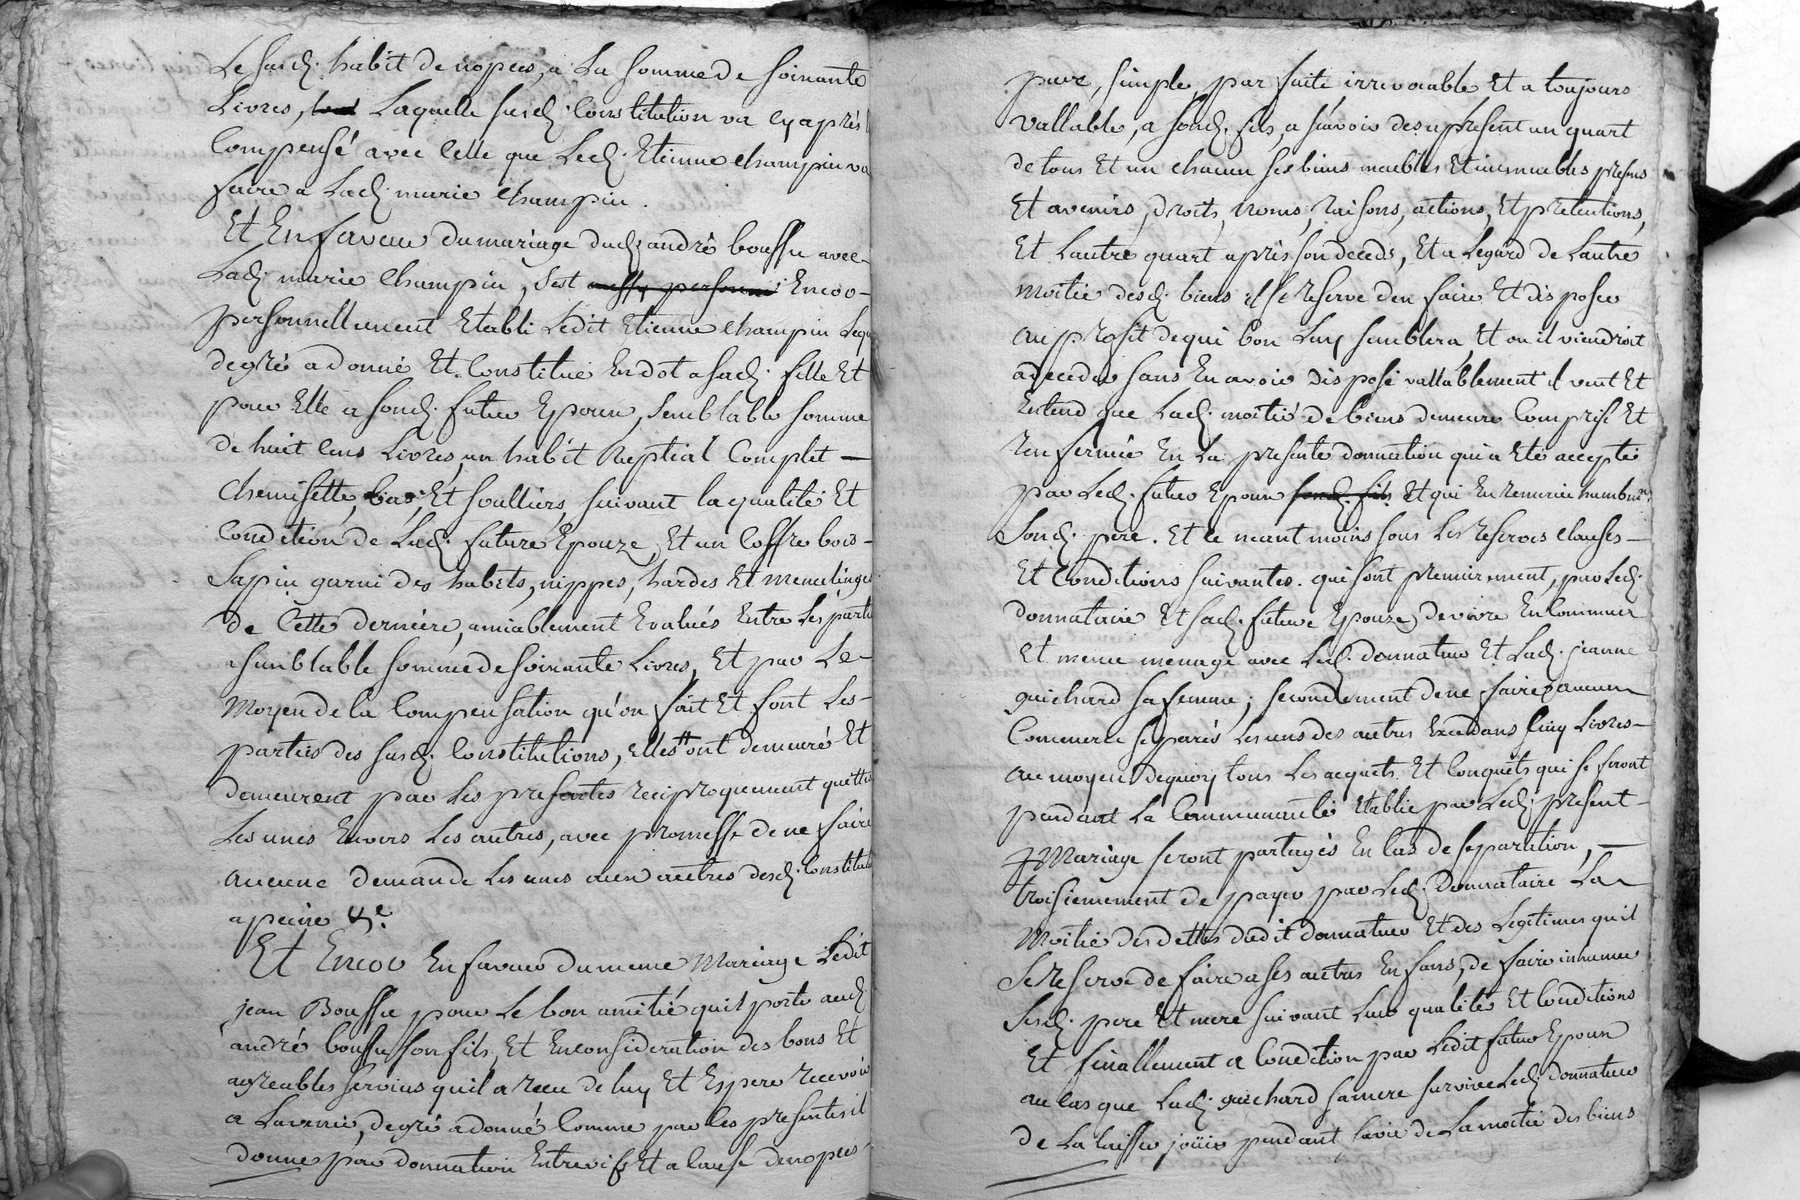 Le susd. habit de nopces, a La somme de soixante
Livres, Laquelle susd. Constitution va cy après
Compensé avec Celle que Led. Etienne champin va
faire a Lad. marie champin.
Et En faveur du mariage dud. andré boussu avec
Lad. marie Champin, s'est aussy personne Encor
personnellement Etabli Ledit Etienne champin Leq
de gré a donné Et Constitué En dot a sad. fille Et
pour Elle a sond. futur Epoux, semblable somme
de huit Cens Livres, un habit Nuptial Complet
Chemisette, bas, Et soulliers, suivant la qualité Et
Condition de Lad. future Epouze, Et un Coffre bois
sapin garni des habits, nippes, hardes Et menu linge
de Cette derniére, amiablement Evalués Entre Les parti
a semblable somme de soixante Livres, Et par Le
Moyen de la Compensation qu'on fait Et font Les
parties des susd. Constitutions, elles ont demeuré Et
demeurent par Les presentes reciproquement quittes
Les unes Envers Les autres, avec promesse de ne faire
aucune demande Les unes aux autres desd. Constitu
a peine &c.
Et Encor En faveur du meme Mariage Ledit
jean Boussu pour Le bon amitié qu'il porte aud.
andré boussu son fils, Et En consideration des bons Et
agreables services qu'il a receu de luy Et Espere recevoir
a L'avenir, de gré a donné Comme par les presentes il
donne par donnation Entre vifs Et a Cause de nopces
pure, simple, parfaite irrevocable Et a toujours
vallable, a sond. fils, a sçavoir des a present un quart
de tous Et un chacun ses biens meubles Et immeubles presens
Et avenirs, droits, noms, raisons, actions, Et pretentions,
Et L'autre quart apris son deceds, Et a L'egard de L'autre
moitié desd. biens il se reserve d'en faire Et disposer
au profit de qui bon Luy semblera, Et ou il viendroit
a deceder sans En avoir disposé vallablement il veut Et
Entend que Lad. moitié de biens demeure Comprise Et
renfermée En La presente donnation qui a Eté acceptée
par Led. futur Epoux sond. fils Et qui En remercie humblem
Sond. pere. Et ce neant moins sous Les reserves clauses
Et Conditions suivantes. qui sont premierement, par Led.
donnataire Et sad. future Epouze, de vivre En Commun
Et meme menage avec Led. donnateur Et Lad. jeanne
guichard sa femme; secondement de ne faire aucun
Commerce separés Les uns des autres Excedans Cinq Livres
au moyen de quoy tous Les acquets Et Conquets qui se feront
pendant La Communauté Etablie par Led. present
Mariage seront partagés En Cas de separation,
troisiemement de payer par Led. Donnataire La
Moitié des dettes dudit donnateur Et des Legitimes qu'il
Se reserve de faire a ses autres Enfans, de faire inhumer
Sesd. pere Et mere suivant Leur qualité Et Conditions
Et finallement a Condition par Ledit futur Epoux
au Cas que Lad. guichard sa mere survive Led. donnateur
de La Laisser joüir pendant sa vie de La moitié des biens